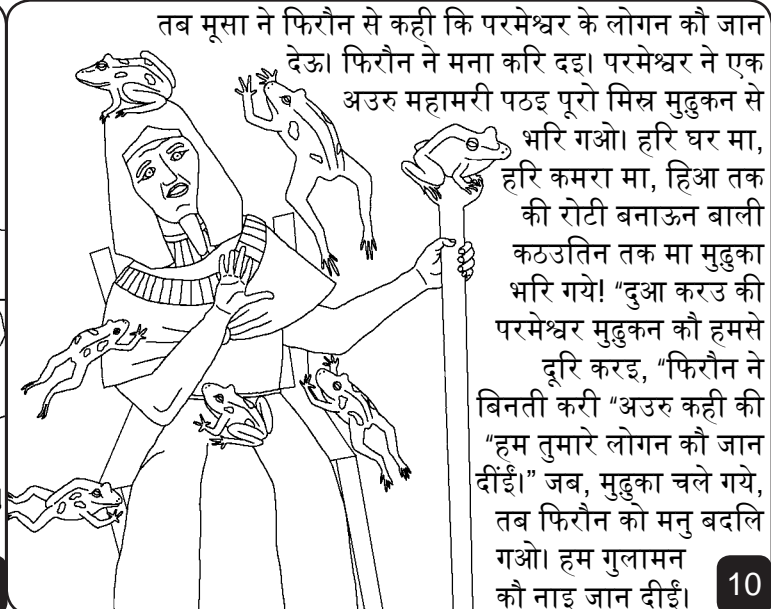 तब मूसा ने फिरौन से कही कि परमेश्वर के लोगन कौ जान
देऊ। फिरौन ने मना करि दइ। परमेश्वर ने एक
अउरु महामरी पठइ पूरो मिस्र मुढुकन से
भरि गओ। हरि घर मा,
हरि कमरा मा, हिआ तक
की रोटी बनाऊन बाली
कठउतिन तक मा मुढुका
भरि गये! “दुआ करउ की
परमेश्वर मुढुकन कौ हमसे
दूरि करइ, “फिरौन ने
बिनती करी “अउरु कही की
“हम तुमारे लोगन कौ जान
दीईं।” जब, मुढुका चले गये,
तब फिरौन को मनु बदलि
गओ। हम गुलामन
कौ नाइ जान दीईं।
10